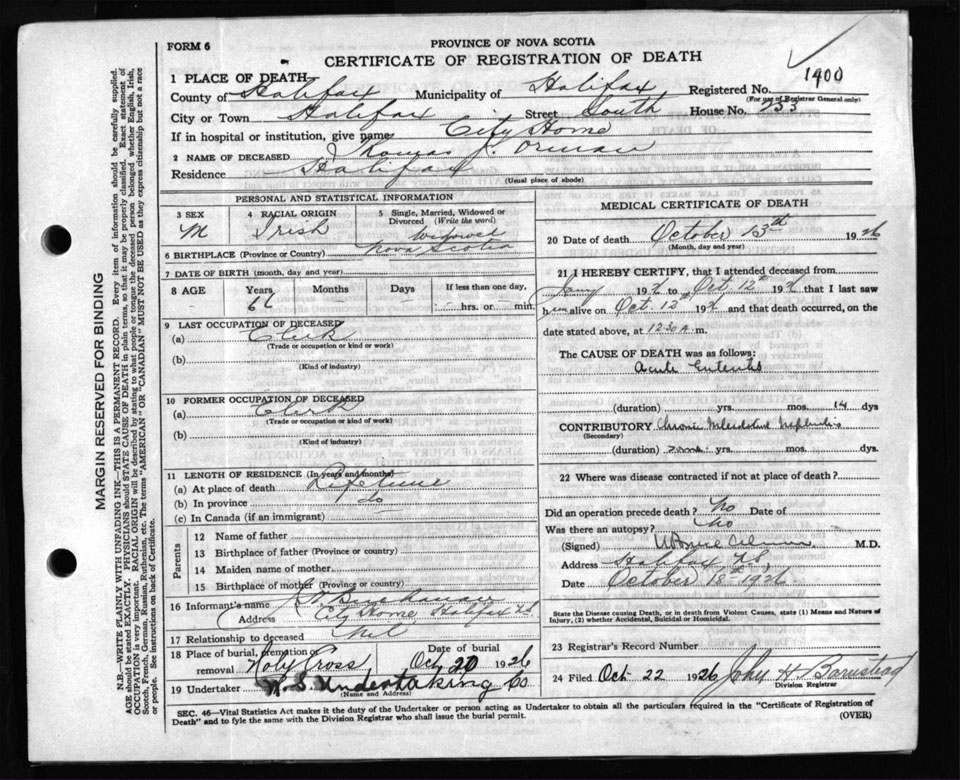 FORM 6
PROVINCE OF NOVA SCOTIA
CERTIFICATE OF REGISTRATION OF DEATH
1400
1 PLACE OF DEATH
County of Halifax Municipality of Halifax Registered No.
(For use of Registrar General only)
City or Town Halifax Street South House No.
If in hospital or institution, give name City Home
2 NAME OF DECEASED Thomas J. Orman
Residence Halifax
(Usual place of abode)
PERSONAL AND STATISTICAL INFORMATION
3 SEX M
4 RACIAL ORIGIN Irish
5 Single, Married, Widowed or Divorced (Write the word) Widowed
6 BIRTHPLACE (Province or Country) Nova Scotia
7 DATE OF BIRTH (month, day and year)
8 AGE Years Months Days If less than one day, hrs. or min.
9 LAST OCCUPATION OF DECEASED
(a) Clerk
(Trade or occupation or kind or work)
(b)
(Kind of industry)
10 FORMER OCCUPATION OF DECEASED
(a) Clerk
(Trade or occupation or kind of work)
(b)
(Kind of industry)
11 LENGTH OF RESIDENCE (In years and months)
(a) At place of death Lifetime
(b) In province do
(c) In Canada (if an immigrant)
Parents
12 Name of father
13 Birthplace of father (Province or country)
14 Maiden name of mother
15 Birthplace of mother (Province or country)
16 Informant's name Buchanan
Address City Home Halifax NS
17 Relationship to deceased Nil
18 Place of burial, cremation or removal Holy Cross
Date of burial Oct 20 1926
19 Undertaker N. S. Undertaking Co
(Name and Address)
MEDICAL CERTIFICATE OF DEATH
20 Date of death October 13th 1926
(Month, day and year)
21 I HEREBY CERTIFY, that I attended deceased from
Jany 192 to Oct. 12th 192 that I last saw
him alive on Oct. 12th 192 and that death occurred, on the
date stated above, at 12.30 A. m.
The CAUSE OF DEATH was as follows:
Acute Enteritis
(duration) yrs. mos. 14 dys
CONTRIBUTORY Chronic Nephritis
(Secondary)
(duration) yrs. mos. dys
22 Where was disease contracted if not at place of death?
Did an operation precede death? No Date of
Was there an autopsy? No
(Signed) M.D.
Address Halifax N.S.
Date October 18th 1926
State the Disease causing Death, or in death from Violent Causes, state (1) Means and Nature of
Injury, (2) whether Accidental, Suicidal or Homicidal.
23 Registrar's Record Number
24 Filed Oct 22 1926 John H Barnstead
Division Registrar
SEC. 46—Vital Statistics Act makes it the duty of the Undertaker or person acting as Undertaker to obtain all the particulars required in the "Certificate of Registration of
Death" and to fyle the same with the Division Registrar who shall issue the burial permit.
(OVER)
MARGIN RESERVED FOR BINDING
N.B.—WRITE PLAINLY WITH UNFADING INK—THIS IS A PERMANENT RECORD. Every item of information should be carefully supplied.
AGE should be stated EXACTLY. PHYSICIANS should STATE CAUSE OF DEATH in plain terms, so that it may be properly classified. Exact statement of
OCCUPATION is very important. RACIAL ORIGIN will be described by stating to what people or tongue the deceased person belonged whether English, Irish,
Scotch, French, German, Russian, Ruthenian, etc. The terms "AMERICAN" OR "CANADIAN" MUST NOT BE USED as they express citizenship but not a race
or people. See instructions on back of Certificate.